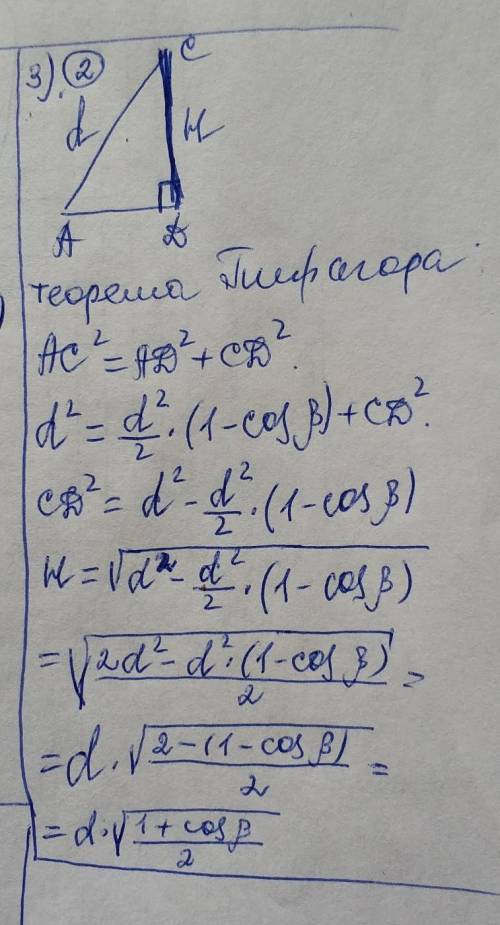 3). ②
C
d
H
A
D
теорема Пифагора
AC² = AD² + CD².
d² = d²/2 · (1 - cos β) + CD².
CD² = d² - d²/2 · (1 - cos β)
H = √(d² - d²/2 · (1 - cos β))
= √((2d² - d² · (1 - cos β))/2) =
= d · √((2 - (1 - cos β))/2) =
= d · √((1 + cos β)/2)